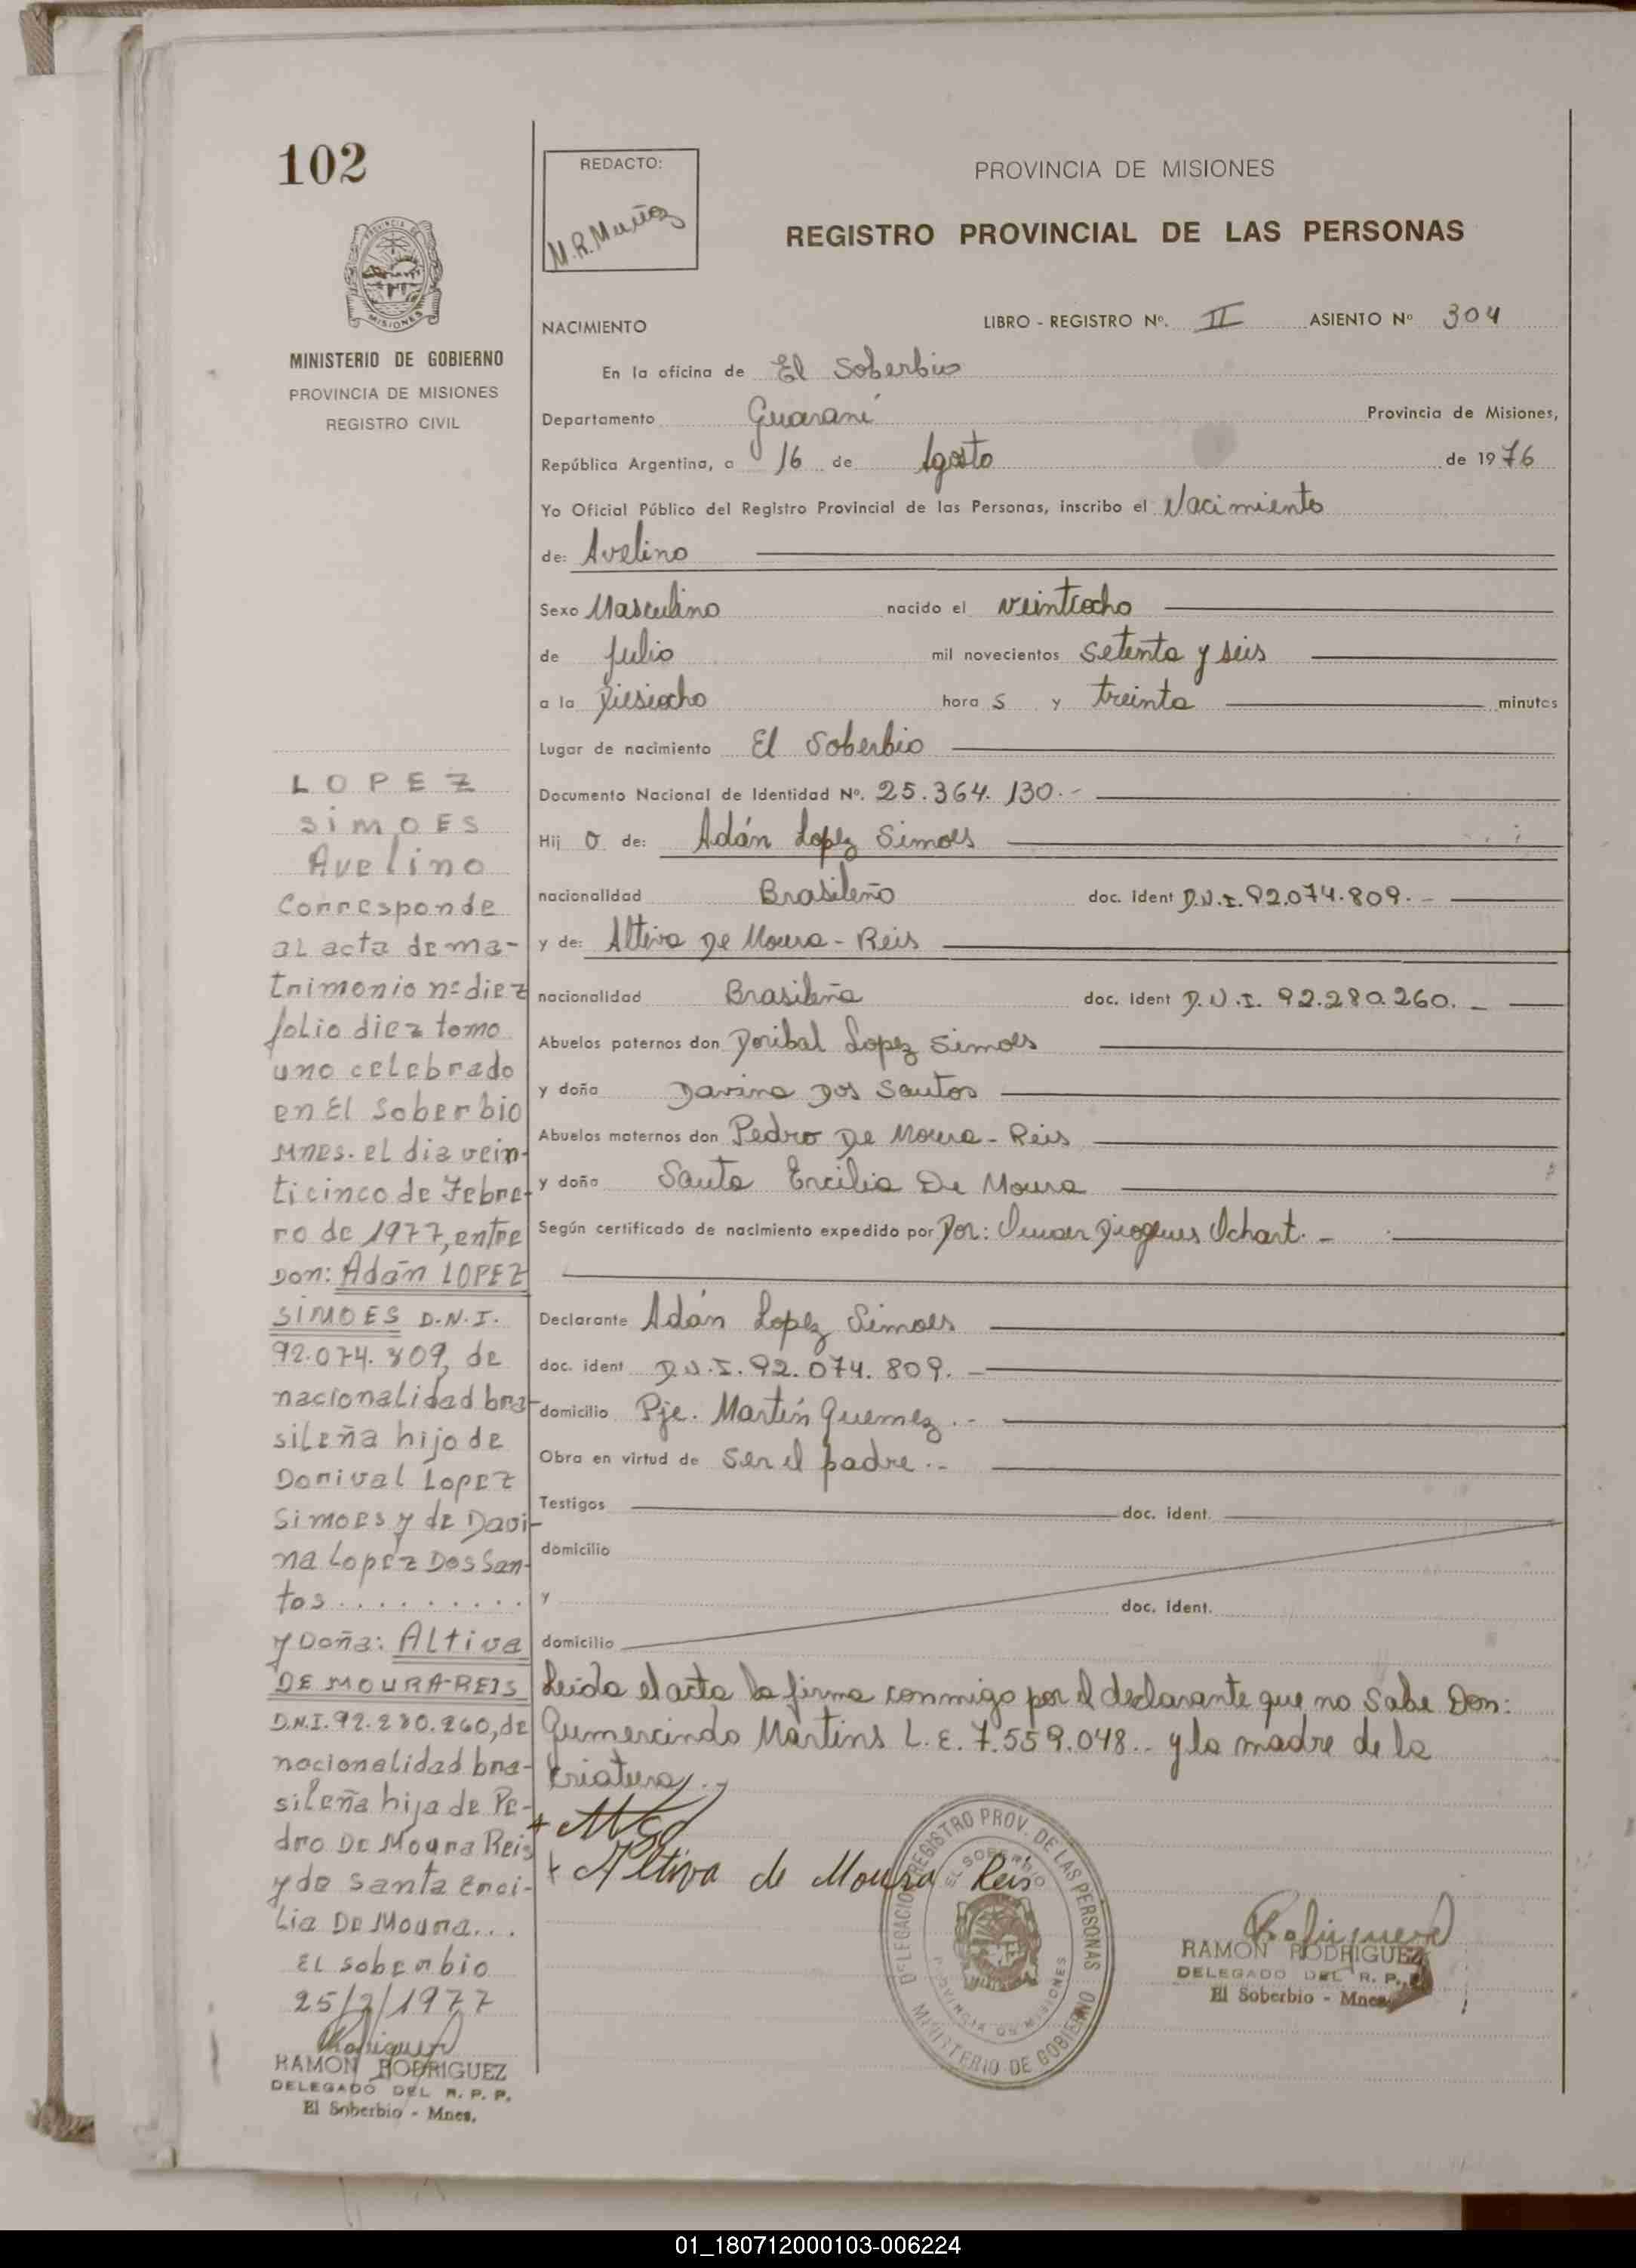 102
PROVINCIA DE
MISIONES
MINISTERIO DE GOBIERNO
PROVINCIA DE MISIONES
REGISTRO CIVIL
LOPEZ
SIMOES
Avelino
Corresponde
al acta de ma-
trimonio nº diez
folio diez tomo
uno celebrado
en El Soberbio
Mnes. el dia vein-
ticinco de Febre-
ro de 1977, entre
Don: Adán LOPEZ
SIMOES D.N.I.
92.074.809, de
nacionalidad bra-
sileña hijo de
Dorival Lopez
Simoes y de Davi-
na Lopez Dos San-
tos . . . . . . . . .
y Doña: Altiva
DE MOURA-REIS
D.N.I. 92.280.260, de
nacionalidad bra-
sileña hija de Pe-
dro De Moura Reis
y de Santa Erci-
lia De Moura....
El Soberbio
25/2/1977
Rodriguez
RAMON RODRIGUEZ
DELEGADO DEL R. P. P.
El Soberbio - Mnes.
REDACTO:
M.R. Muñoz
PROVINCIA DE MISIONES
REGISTRO PROVINCIAL DE LAS PERSONAS
NACIMIENTO LIBRO - REGISTRO Nº. II ASIENTO Nº 304
En la oficina de El Soberbio
Departamento Guaraní Provincia de Misiones,
República Argentina, a 16 de Agosto de 1976
Yo Oficial Público del Registro Provincial de las Personas, inscribo el Nacimiento
de: Avelino
Sexo Masculino nacido el veintiocho
de Julio mil novecientos setenta y seis
a la Diesiocho hora s y treinta minutos
Lugar de nacimiento El Soberbio
Documento Nacional de Identidad Nº. 25.364.130.-
Hij o de: Adán Lopez Simoes
nacionalidad Brasileño doc. ident D.N.I. 92.074.809.-
y de: Altiva De Moura - Reis
nacionalidad Brasileña doc. ident D.N.I. 92.280.260.-
Abuelos paternos don Doribal Lopez Simoes
y doña Davina Dos Santos
Abuelos maternos don Pedro De Moura - Reis
y doña Santa Ercilia De Moura
Según certificado de nacimiento expedido por Dor: Diogenes Ochart.-
Declarante Adán Lopez Simoes
doc. ident D.N.I. 92.074.809.-
domicilio Pje. Martín Guemez.-
Obra en virtud de Ser el padre.-
Testigos doc. ident.
domicilio
y doc. ident.
domicilio
Leida el acta la firma conmigo por el declarante que no sabe Don:
Gumercindo Martins L.E. 7.559.048.. y la madre de la
criatura.-
+
+ Altiva de Moura Reis
DELEGACION REGISTRO PROV. DE LAS PERSONAS
EL SOBERBIO
PROVINCIA DE MISIONES
MINISTERIO DE GOBIERNO
Rodriguez
RAMON RODRIGUEZ
DELEGADO DEL R. P.
El Soberbio - Mnes.
01_180712000103-006224